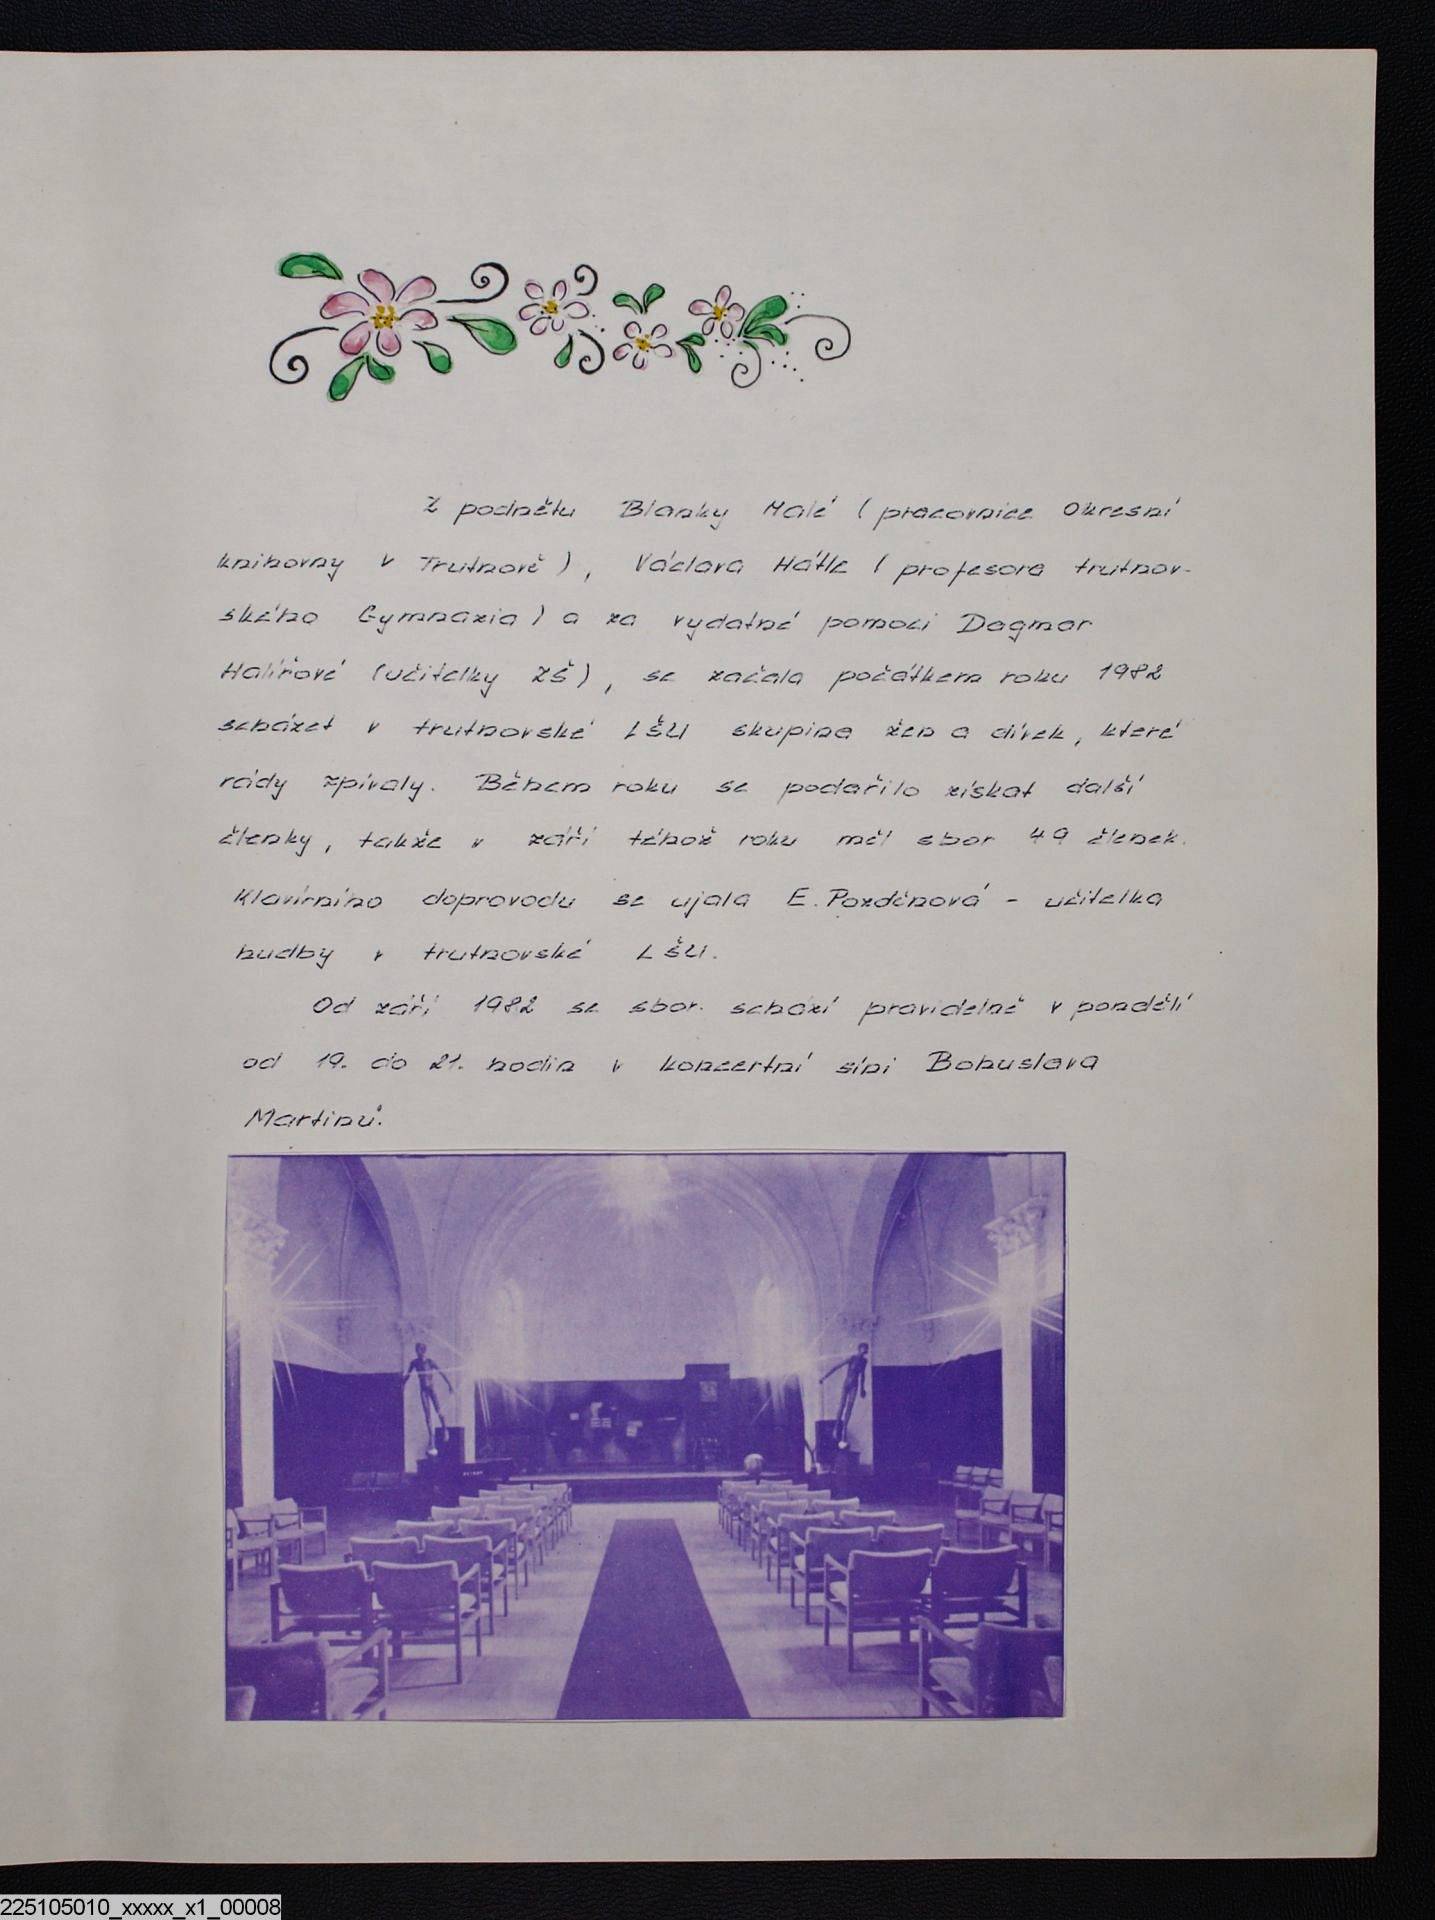 Z podnětu Blanky Malé (pracovnice Okresní
knihovny v Trutnově), Václava Hátle (profesora trutnov-
ského Gymnazia) a za vydatné pomoci Dagmar
Halířové (učitelky ZŠ), se začala počátkem roku 1982
scházet v trutnovské LŠU skupina žen a dívek, které
rády zpívaly. Během roku se podařilo získat další
členky, takže v září téhož roku měl sbor 49 členek.
Klavírního doprovodu se ujala E. Pozděnová - učitelka
hudby v trutnovské LŠU.
Od září 1982 se sbor schází pravidelně v pondělí
od 19. do 21. hodin v koncertní síni Bohuslava
Martinů.
225105010_xxxxx_x1_00008